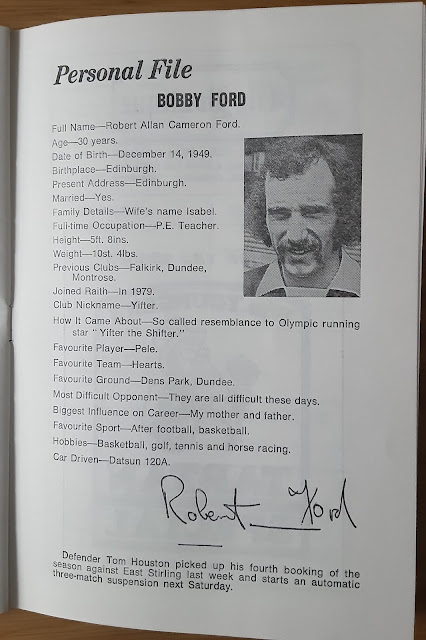 Personal File
BOBBY FORD
Full Name—Robert Allan Cameron Ford.
Age—30 years.
Date of Birth—December 14, 1949.
Birthplace—Edinburgh.
Present Address—Edinburgh.
Married—Yes.
Family Details—Wife's name Isabel.
Full-time Occupation—P.E. Teacher.
Height—5ft. 8ins.
Weight—10st. 4lbs.
Previous Clubs—Falkirk, Dundee,
Montrose.
Joined Raith—In 1979.
Club Nickname—Yifter.
How It Came About—So called resemblance to Olympic running
star "Yifter the Shifter."
Favourite Player—Pele.
Favourite Team—Hearts.
Favourite Ground—Dens Park, Dundee.
Most Difficult Opponent—They are all difficult these days.
Biggest Influence on Career—My mother and father.
Favourite Sport—After football, basketball.
Hobbies—Basketball, golf, tennis and horse racing.
Car Driven—Datsun 120A.
Robert Ford
Defender Tom Houston picked up his fourth booking of the
season against East Stirling last week and starts an automatic
three-match suspension next Saturday.